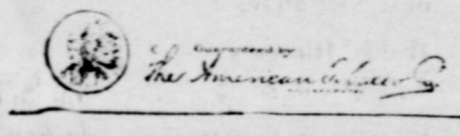 Guaranteed by
The American Tobacco Co.